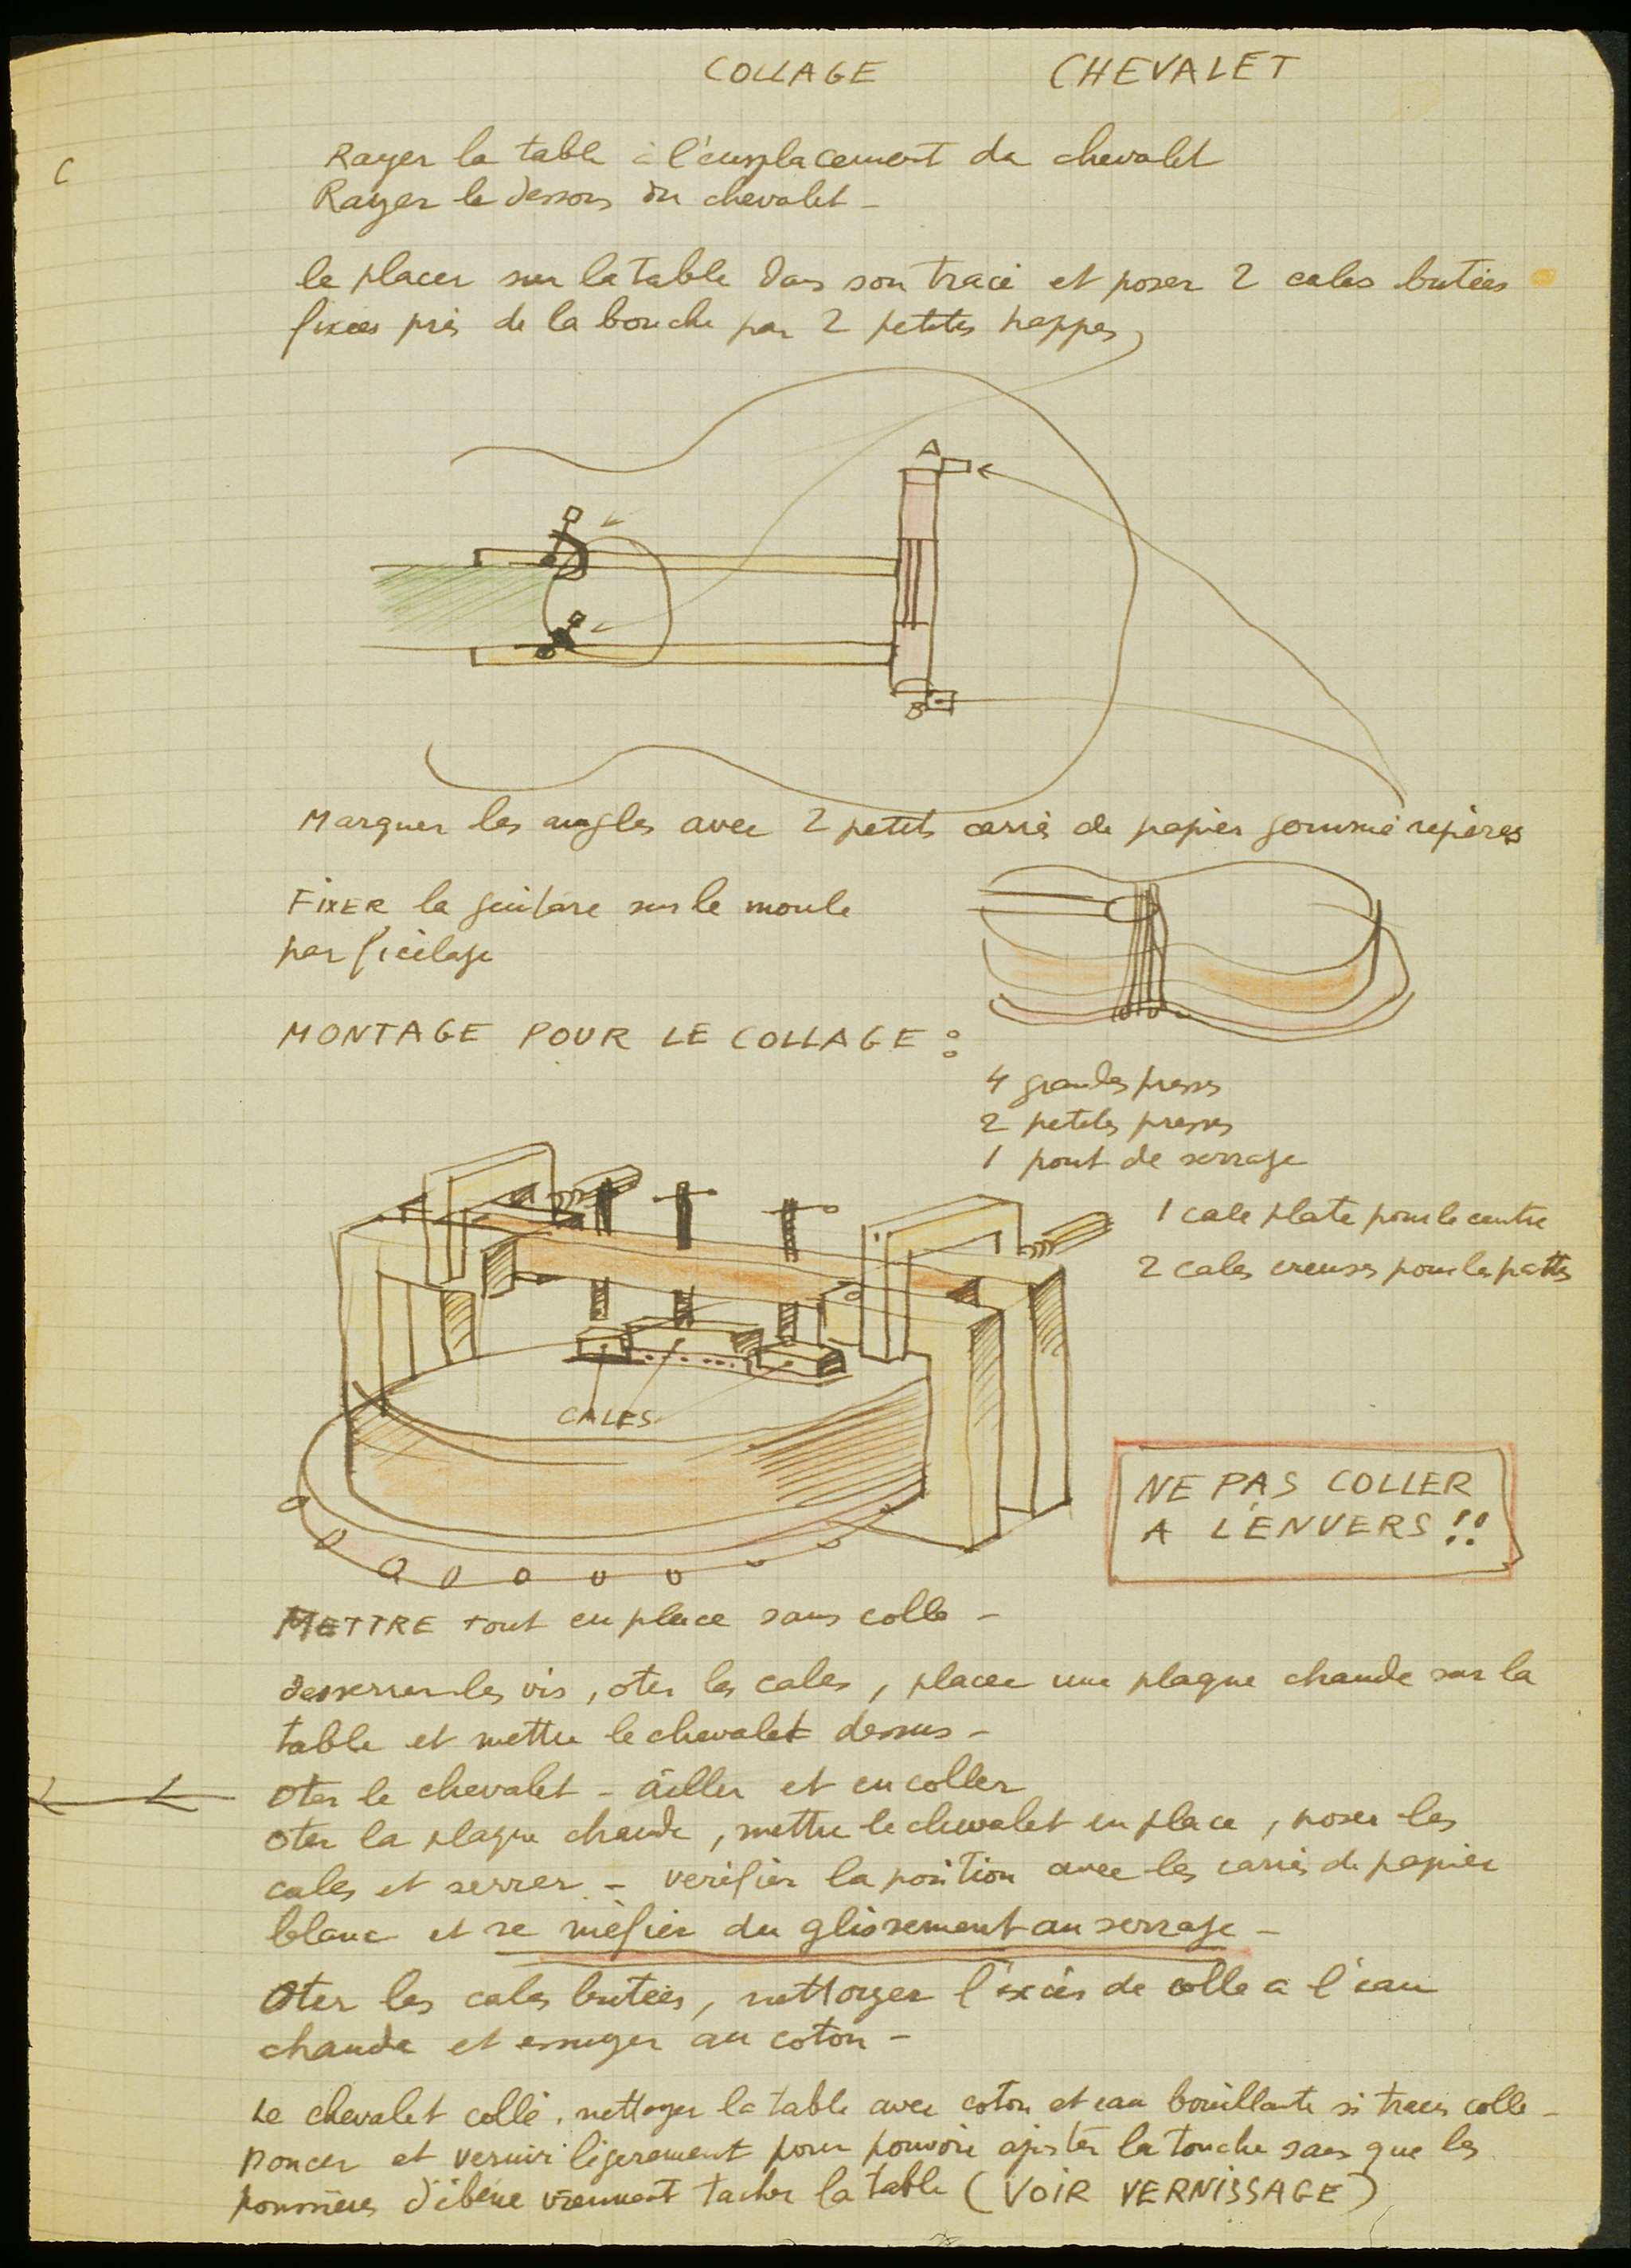 COLLAGE CHEVALET
C
Rayer la table à l'emplacement du chevalet
Rayer le dessous du chevalet -
le placer sur la table dans son tracé et poser 2 cales butées
fixées près de la bouche par 2 petites happes
A
B
Marquer les angles avec 2 petits carrés de papier gommé repères
FIXER la guitare sur le moule
par ficelage
MONTAGE POUR LE COLLAGE :
4 grandes presses
2 petites presses
1 pont de serrage
1 cale plate pour le centre
2 cales creuses pour les pattes
CALES
NE PAS COLLER
A L'ENVERS !!
METTRE tout en place sans colle -
desserrer les vis, oter les cales, placer une plaque chaude sur la
table et mettre le chevalet dessus -
Oter le chevalet - ailler et encoller
Oter la plaque chaude, mettre le chevalet en place, poser les
cales et serrer - verifier la position avec les carrés de papier
blanc et se méfier du glissement au serrage -
Oter les cales butées, nettoyer l'excès de colle a l'eau
chaude et essuyer au coton -
Le chevalet collé, nettoyer la table avec coton et eau bouillante si traces colle -
Poncer et vernir légerement pour pouvoir ajuster la touche sans que les
poussières d'ébène viennent tacher la table (VOIR VERNISSAGE)